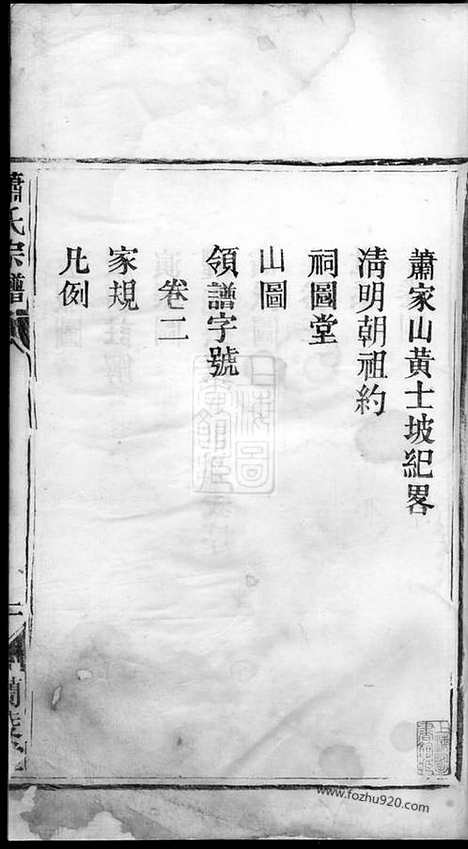 蕭家山黃士坡紀畧
淸明朝祖約
祠圖堂
山圖
領譜字號
卷二
家規
凡例
蕭氏宗譜
二
蘭陵堂
www.fozhu920.com